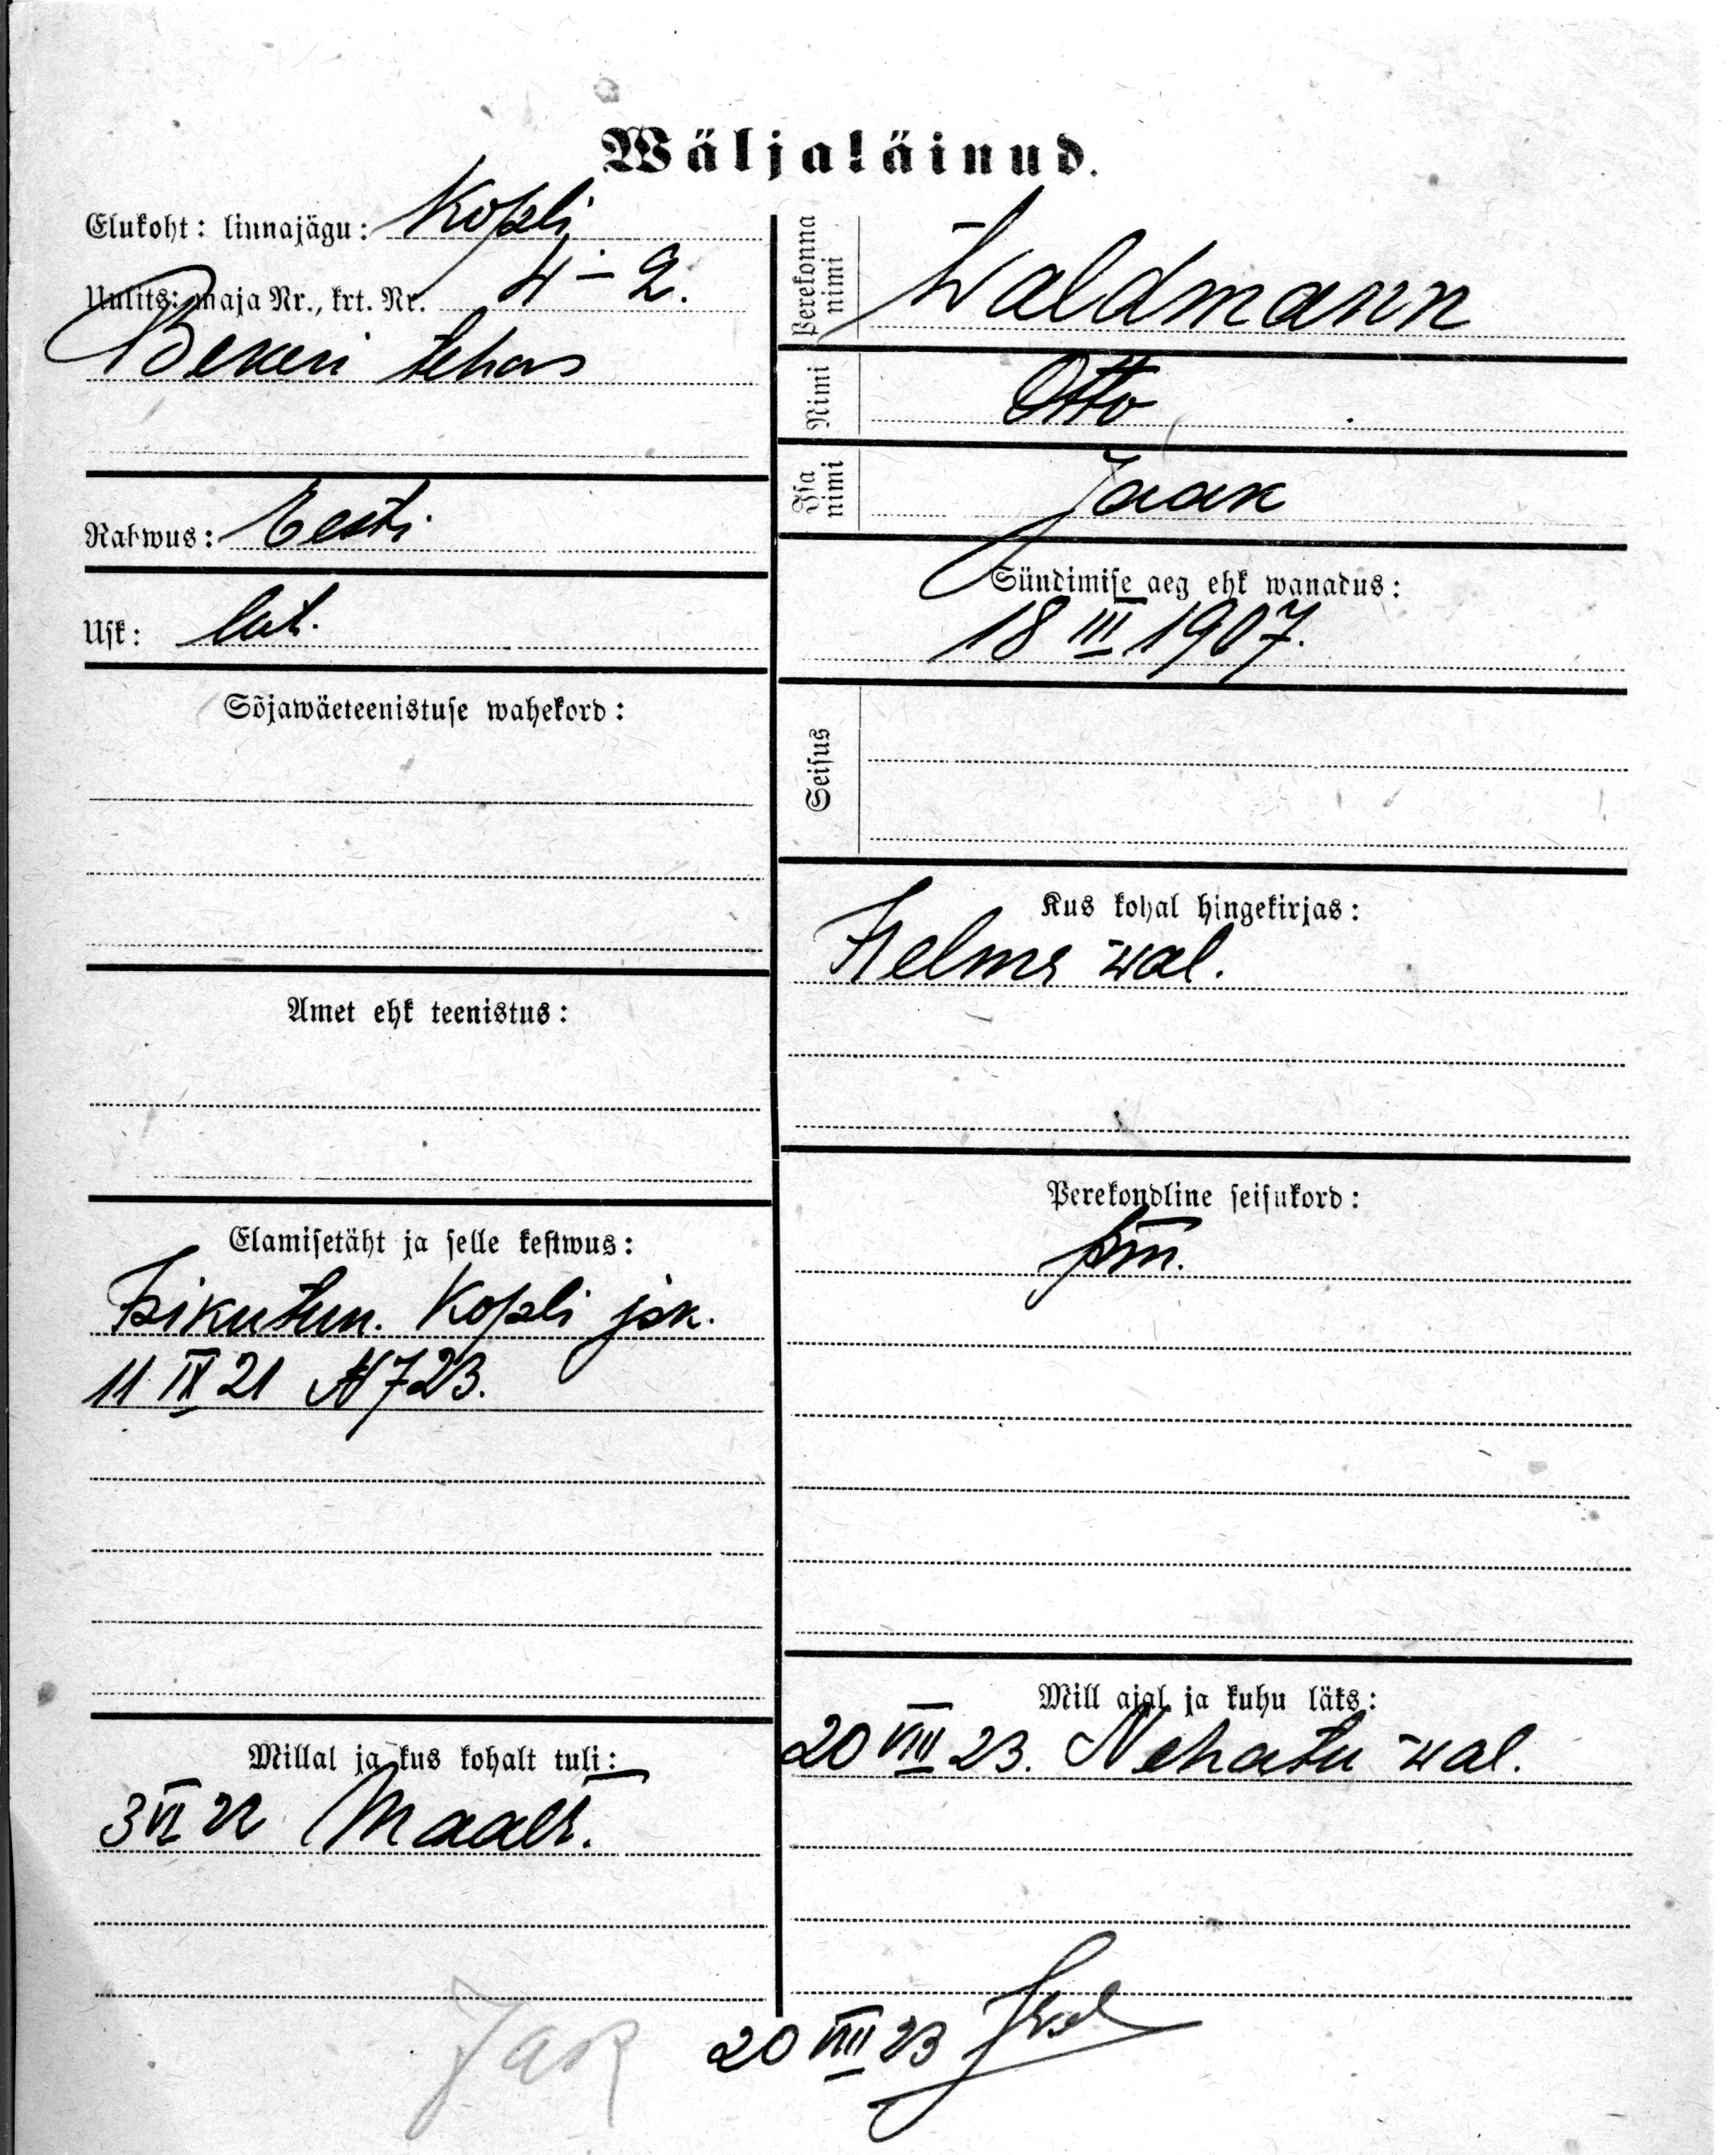 Wäljaläinud.
Elukoht: linnajägu: Kopli
Uulits: maja Nr., krt. Nr. 4-2.
Bekeri tehas
Rahwus: Eesti
Usk: lut.
Sõjawäeteenistuse wahekord:
Amet ehk teenistus:
Elamisetäht ja selle kestwus:
Isikutun. Kopli jsk.
11 IX 21 № 723.
Millal ja kus kohalt tuli:
3 VI 22 Maalt.
Perekonna nimi Waldmann
Nimi Otto
Isa nimi Jaak
Sündimise aeg ehk wanadus:
18 III 1907.
Seisus
Kus kohal hingekirjas:
Helme wal.
Perekondline seisukord:
Mill ajal ja kuhu läks:
20 VIII 23. Nehatu wal.
20 VIII 23
Jak